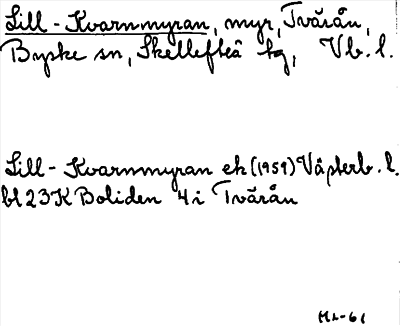 Lill-Kvarnmyran, myr, Tvärån,
Byske sn, Skellefteå tg, Vb. l.
Lill-Kvarnmyran ek (1959) Västerb. l.
bl 23K Boliden 4i Tvärån